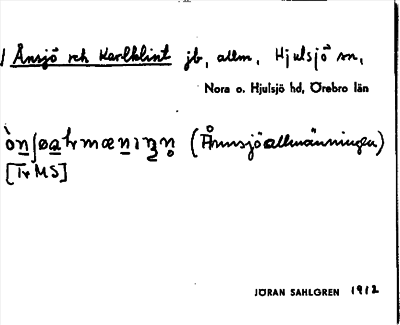 Ånsjö och Karlklint jb, allm, Hjulsjö sn,
Nora o. Hjulsjö hd, Örebro län
(Ånnsjöallmänningen)
[Tr MS]
JÖRAN SAHLGREN 1912